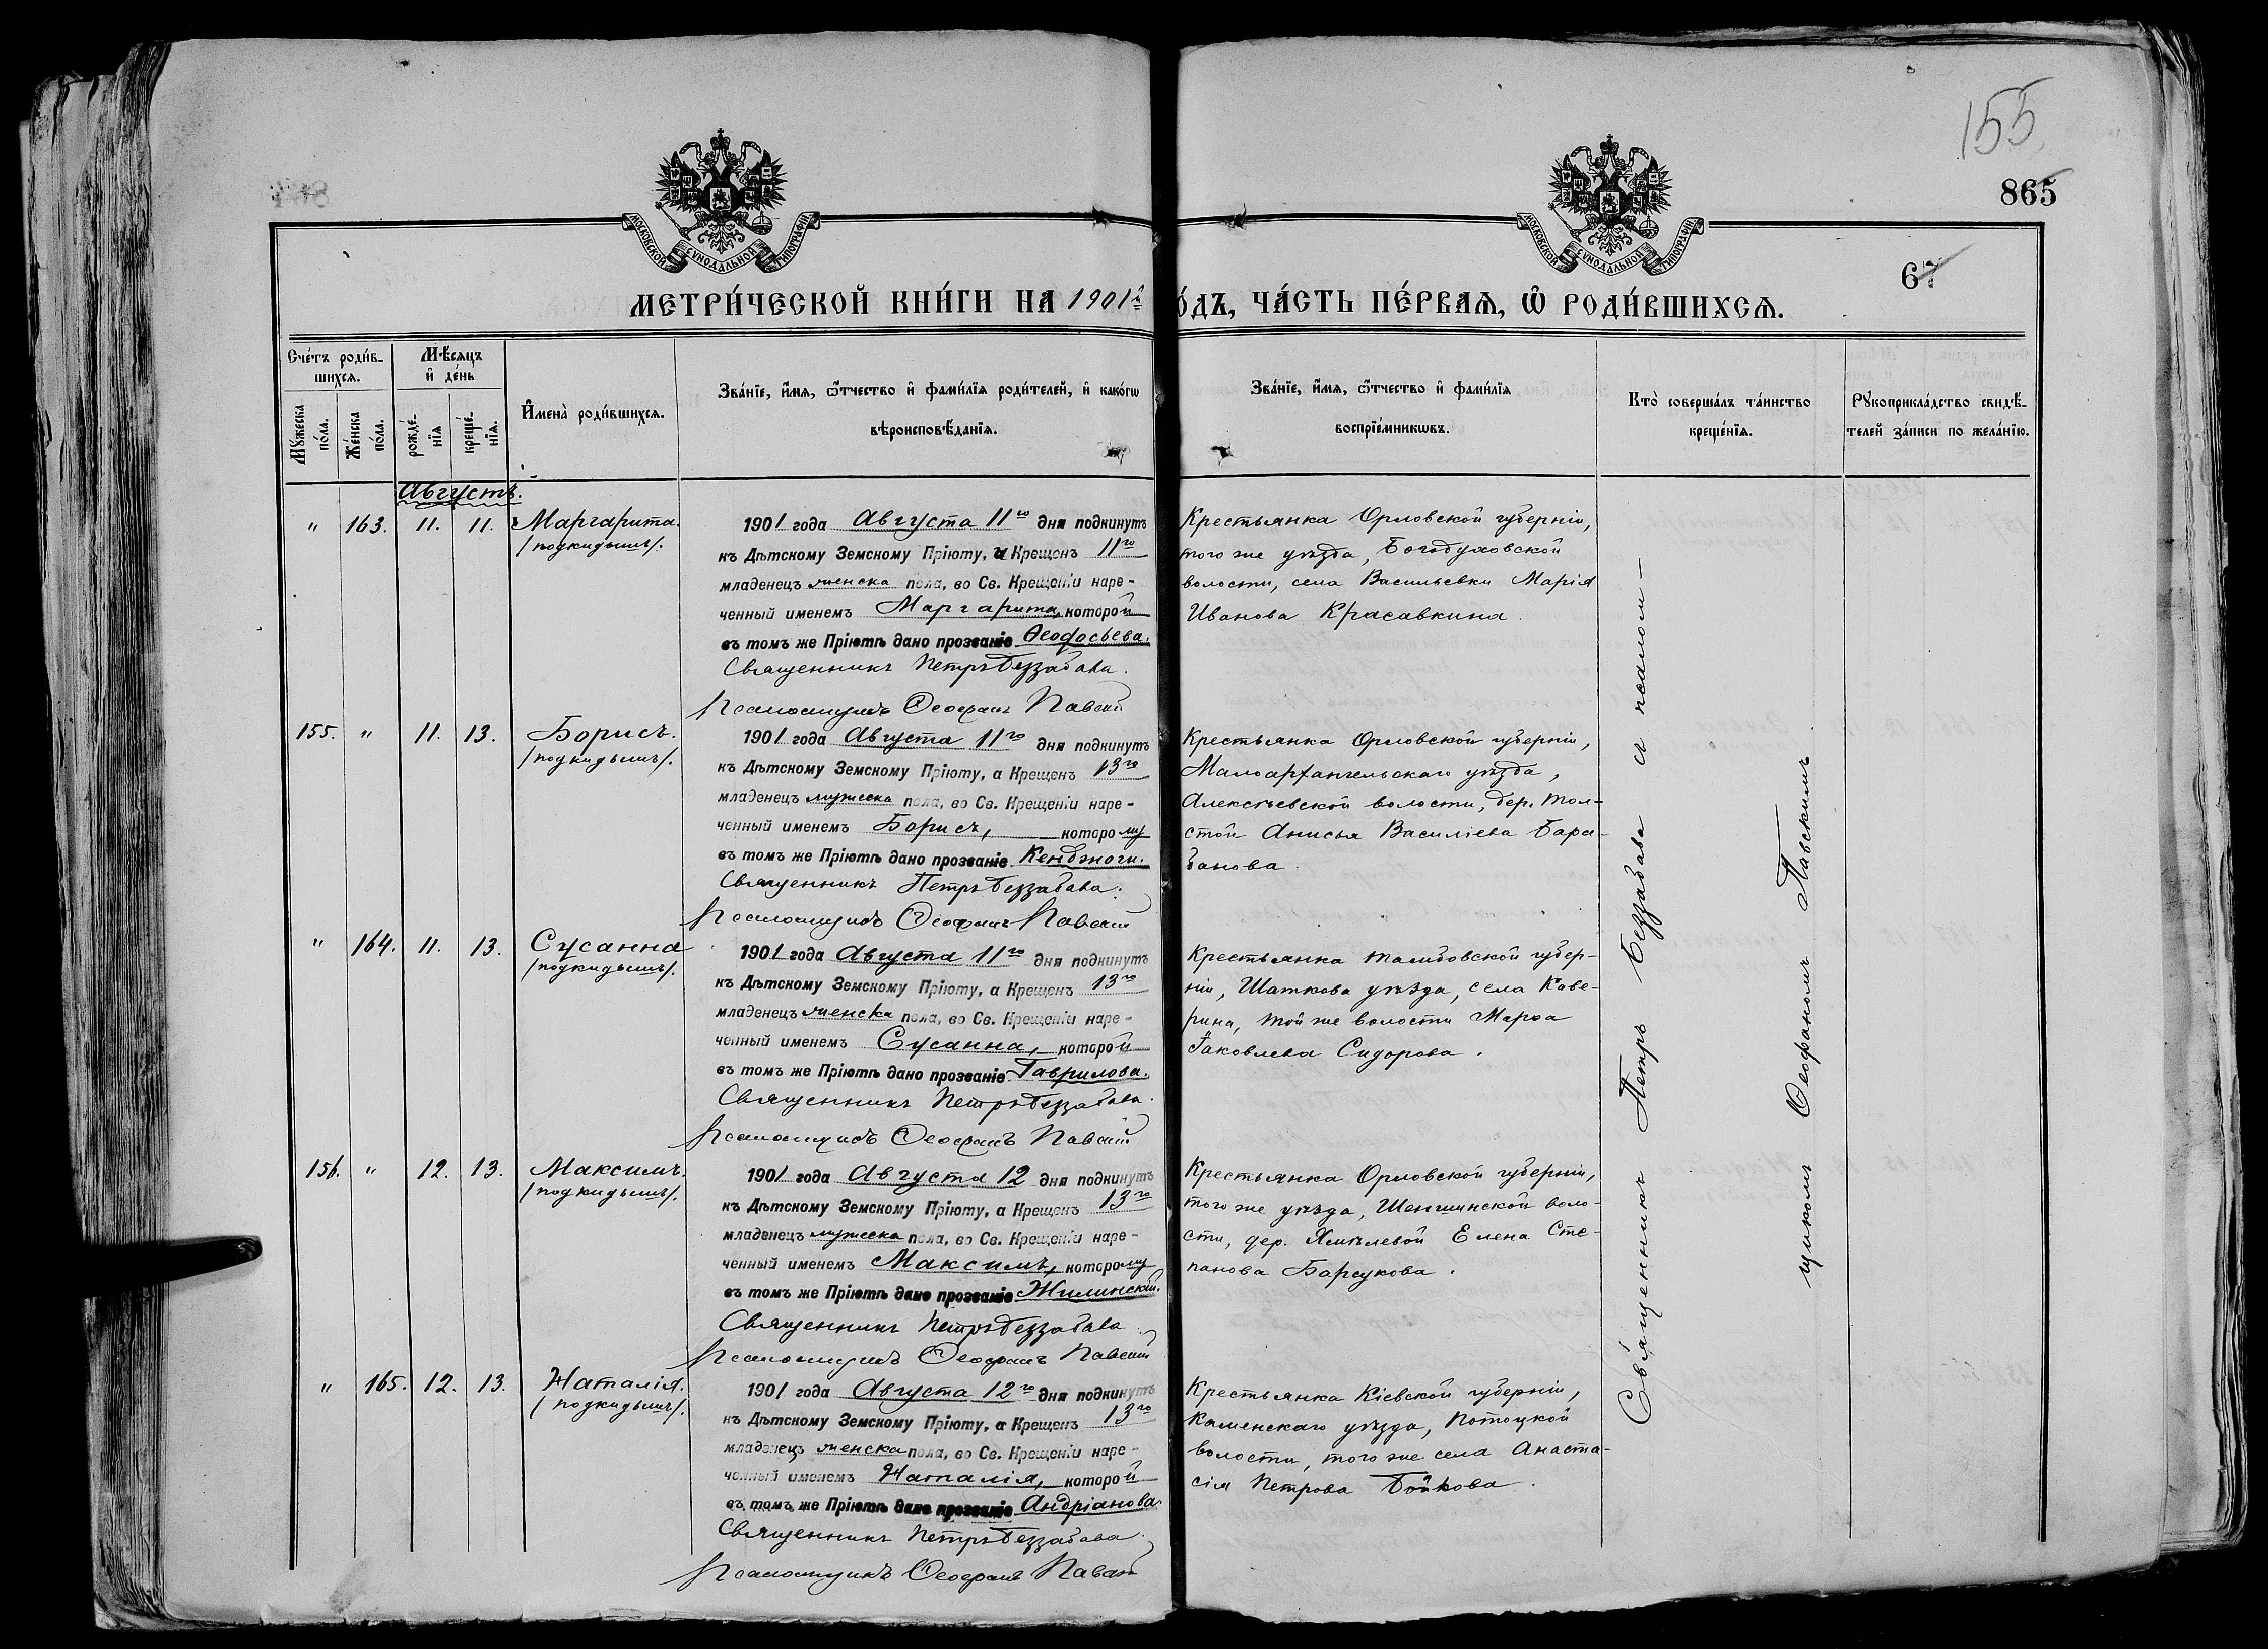 155
865
МОСКОВСКОЙ СѴНОДАЛЬНОЙ ТИПОГРАФІИ
МОСКОВСКОЙ СѴНОДАЛЬНОЙ ТИПОГРАФІИ
67
МЕТРИ́ЧЕСКОЙ КНИ́ГИ НА 1901й
О́ДЪ, ЧА́СТЬ ПЕ́РВАЯ, Ѡ҆ РОДИ́ВШИХСЯ.
Сче́тъ роди́в-
шихся.
Мꙋ́жеска
по́ла.
Же́нска
по́ла.
Мѣ́сяцъ
и҆ де́нь
рожде́-
нїя
креще́-
нїя.
И҆мена̀ роди́вшихся.
Зва́нїе, и҆́мя, ѻ҆́тчество и҆ фами́лїя роди́телей, и҆ како́гѡ
вѣроисповѣ́данїя.
Зва́нїе, и҆́мя, ѻ҆́тчество и҆ фами́лїя
воспрїе́мникѡвъ.
Кто̀ соверша́лъ та́инство
креще́нїя.
Рꙋкоприкла́дство свидѣ́-
телей за́писи по жела́нїю.
Августъ.
" 163. 11. 11. Маргарита.
/подкидышъ/.
1901 года Августа 11го дня подкинутъ
къ Дѣтскому Земскому Пріюту, и Крещенъ 11го
младенецъ женска пола, во Св. Крещеніи наре-
ченный именемъ Маргарита, которой
въ томъ же Пріютѣ дано прозваніе Ѳеодосьева.
Священникъ Петръ Беззабава.
Псаломщикъ Ѳеофанъ Павскій
Крестьянка Орловской губерніи,
того же уѣзда, Богодуховской
волости, села Васильевки Марія
Иванова Красавкина.
155. " 11. 13. Борисъ.
/подкидышъ/.
1901 года Августа 11го дня подкинутъ
къ Дѣтскому Земскому Пріюту, а Крещенъ 13го
младенецъ мужеска пола, во Св. Крещеніи наре-
ченный именемъ Борисъ, которому
въ томъ же Пріютѣ дано прозваніе
Священникъ Петръ Беззабава.
Псаломщикъ Ѳеофанъ Павскій
Крестьянка Орловской губерніи,
Малоархангельскаго уѣзда,
Алексѣевской волости, дер. Тол-
стой Анисья Василіева Бара-
банова.
" 164. 11. 13. Сусанна
/подкидышъ/.
1901 года Августа 11го дня подкинутъ
къ Дѣтскому Земскому Пріюту, а Крещенъ 13го
младенецъ женска пола, во Св. Крещеніи наре-
ченный именемъ Сусанна, которой
въ томъ же Пріютѣ дано прозваніе Гаврилова.
Священникъ Петръ Беззабава.
Псаломщикъ Ѳеофанъ Павскій
Крестьянка Тамбовской губер-
ніи, Шаткова уѣзда, села Каве-
рина, той же волости Марѳа
Іаковлева Сидорова.
156. " 12. 13. Максимъ.
/подкидышъ/.
1901 года Августа 12 дня подкинутъ
къ Дѣтскому Земскому Пріюту, а Крещенъ 13го
младенецъ мужеска пола, во Св. Крещеніи наре-
ченный именемъ Максимъ, которому
въ томъ же Пріютѣ дано прозваніе Жилинскій.
Священникъ Петръ Беззабава.
Псаломщикъ Ѳеофанъ Павскій
Крестьянка Орловской губерніи,
того же уѣзда, Шеншинской воло-
сти, дер. Хмѣлевой Елена Сте-
панова Барсукова.
" 165. 12. 13. Наталія.
/подкидышъ/.
1901 года Августа 12го дня подкинутъ
къ Дѣтскому Земскому Пріюту, а Крещенъ 13го
младенецъ женска пола, во Св. Крещеніи наре-
ченный именемъ Наталія, которой
въ томъ же Пріютѣ дано прозваніе Андріанова.
Священникъ Петръ Беззабава.
Псаломщикъ Ѳеофанъ Павскій
Крестьянка Кіевской губерніи,
Каменскаго уѣзда, Потоцкой
волости, того же села Анаста-
сія Петрова Бойкова.
Священникъ Петръ Беззабава съ псалом-
щикомъ Ѳеофаномъ Павскимъ.